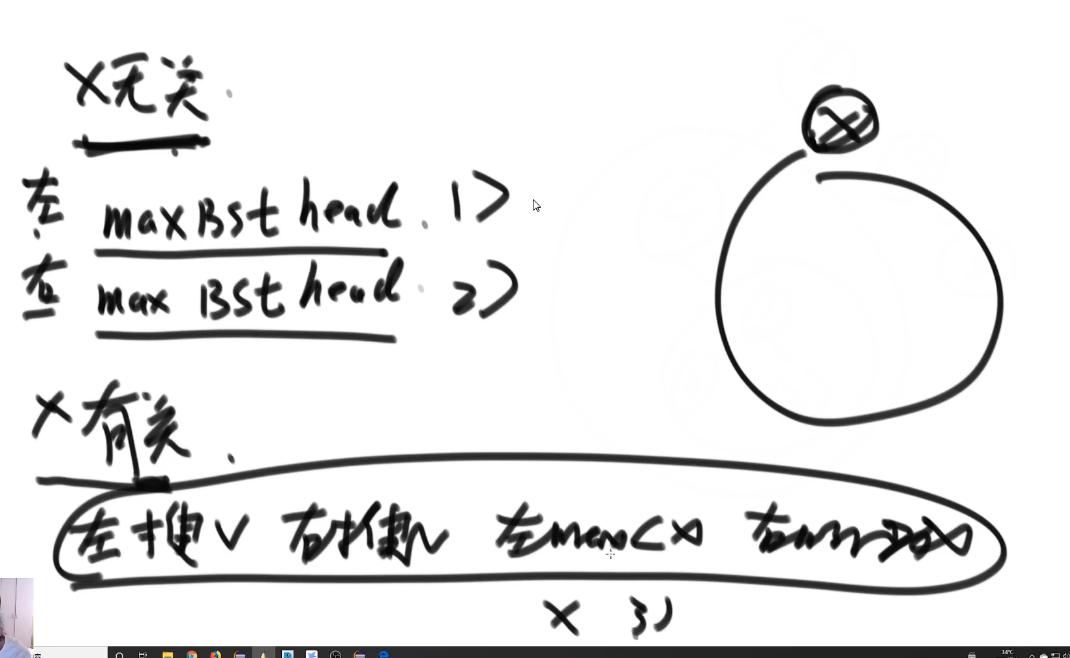 X无关.
左 maxBSt head. 1)
右 max BSt head 2)
X有关.
左搜√ 右搜√ 左max<X 右min>X
X 3)
14°C